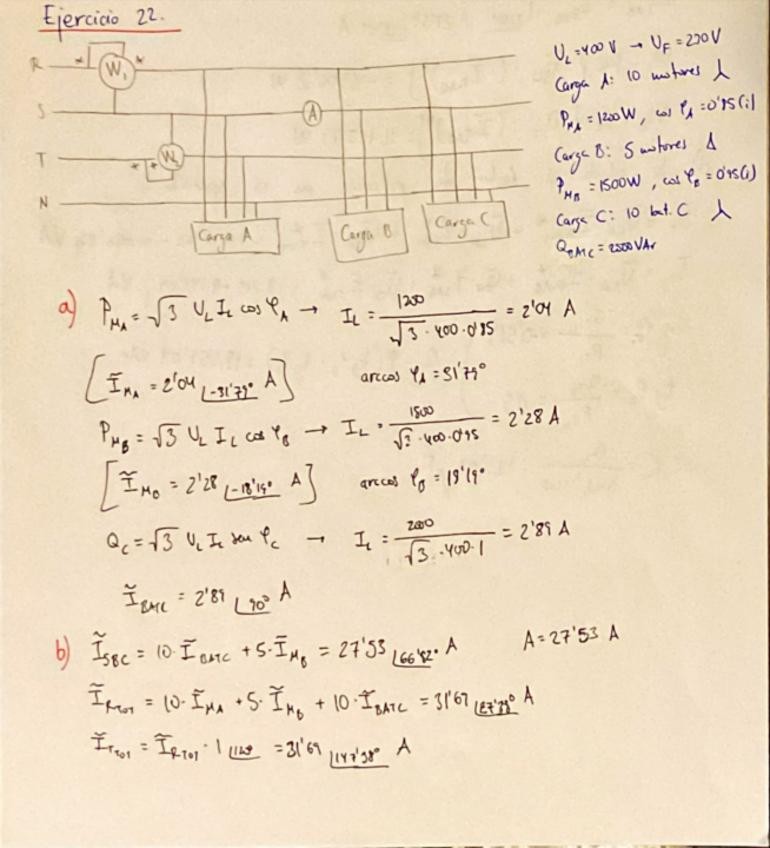 Ejercicio 22.
R
W₁
S
A
T
W₂
N
Carga A
Carga B
Carga C
U_L = 400 V → U_F = 230 V
Carga A: 10 motores ⅄
P_MA = 1200 W, cos φ_A = 0'85 (i)
Carga B: 5 motores Δ
P_MB = 1500 W, cos φ_B = 0'95 (i)
Carga C: 10 bat. C ⅄
Q_BATC = 2000 VAr
a) P_MA = √3 U_L I_L cos φ_A → I_L = 1200 / (√3 · 400 · 0'85) = 2'04 A
[Ĩ_MA = 2'04 ∠-31'79° A] arccos φ_A = 31'79°
P_MB = √3 U_L I_L cos φ_B → I_L = 1500 / (√3 · 400 · 0'95) = 2'28 A
[Ĩ_MB = 2'28 ∠-18'19° A] arccos φ_B = 18'19°
Q_C = √3 U_L I_L sen φ_C → I_L = 2000 / (√3 · 400 · 1) = 2'89 A
Ĩ_BATC = 2'89 ∠90° A
b) Ĩ_SBC = 10 · Ĩ_BATC + 5 · Ĩ_MB = 27'53 ∠66'82° A A = 27'53 A
Ĩ_RTOT = 10 · Ĩ_MA + 5 · Ĩ_MB + 10 · Ĩ_BATC = 31'67 A
Ĩ_TTOT = Ĩ_RTOT · 1 ∠120 = 31'69 ∠147'38° A